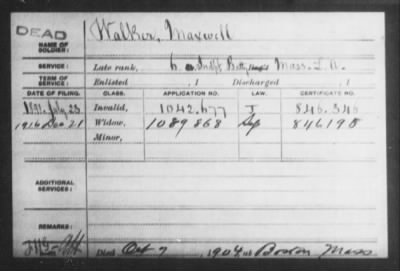 DEAD
Walker, Maxwell
NAME OF SOLDIER:
SERVICE: Late rank, 6 Indpt Batty Mass. L. A.
TERM OF SERVICE: Enlisted , 1 Discharged , 1
DATE OF FILING. CLASS. APPLICATION NO. LAW. CERTIFICATE NO.
1891 July 23 Invalid, 1042.677 J 846.346
1916 Dec 21 Widow, 1089868 846198
Minor,
ADDITIONAL SERVICES:
REMARKS:
Died Oct 7 , 1904, at Boston Mass